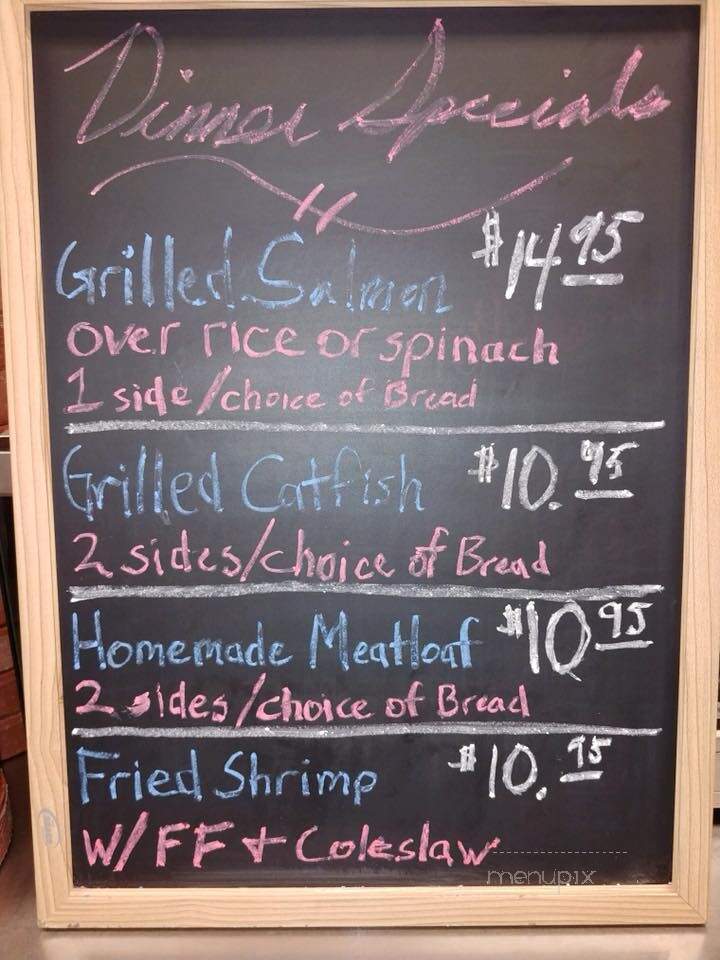 Dinner Specials
Grilled Salmon $14.95
over rice or spinach
1 side/choice of Bread
Grilled Catfish $10.95
2 sides/choice of Bread
Homemade Meatloaf $10.95
2 sides/choice of Bread
Fried Shrimp $10.95
W/FF + Coleslaw
menupix